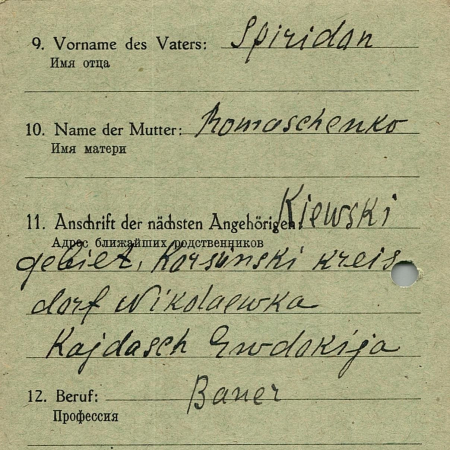 9. Vorname des Vaters: Spiridon
Имя отца
10. Name der Mutter: Romaschenko
Имя матери
11. Anschrift der nächsten Angehörigen: Kiewski
Адрес ближайших родственников
gebiet, Korsunski kreis
dorf Nikolaewka
Kajdasch Ewdokija
12. Beruf: Bauer
Профессия